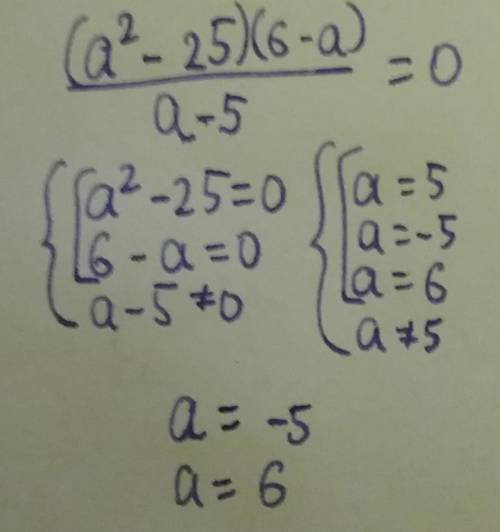 (a² - 25)(6 - a) / a - 5 = 0
{ [ a² - 25 = 0
6 - a = 0
a - 5 ≠ 0
{ [ a = 5
a = -5
a = 6
a ≠ 5
a = -5
a = 6